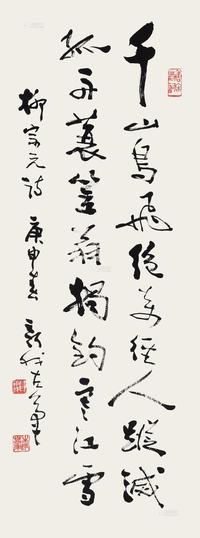 千山鳥飛絕萬徑人蹤滅
孤舟蓑笠翁獨釣寒江雪
柳宗元詩 庚申春 新我左筆